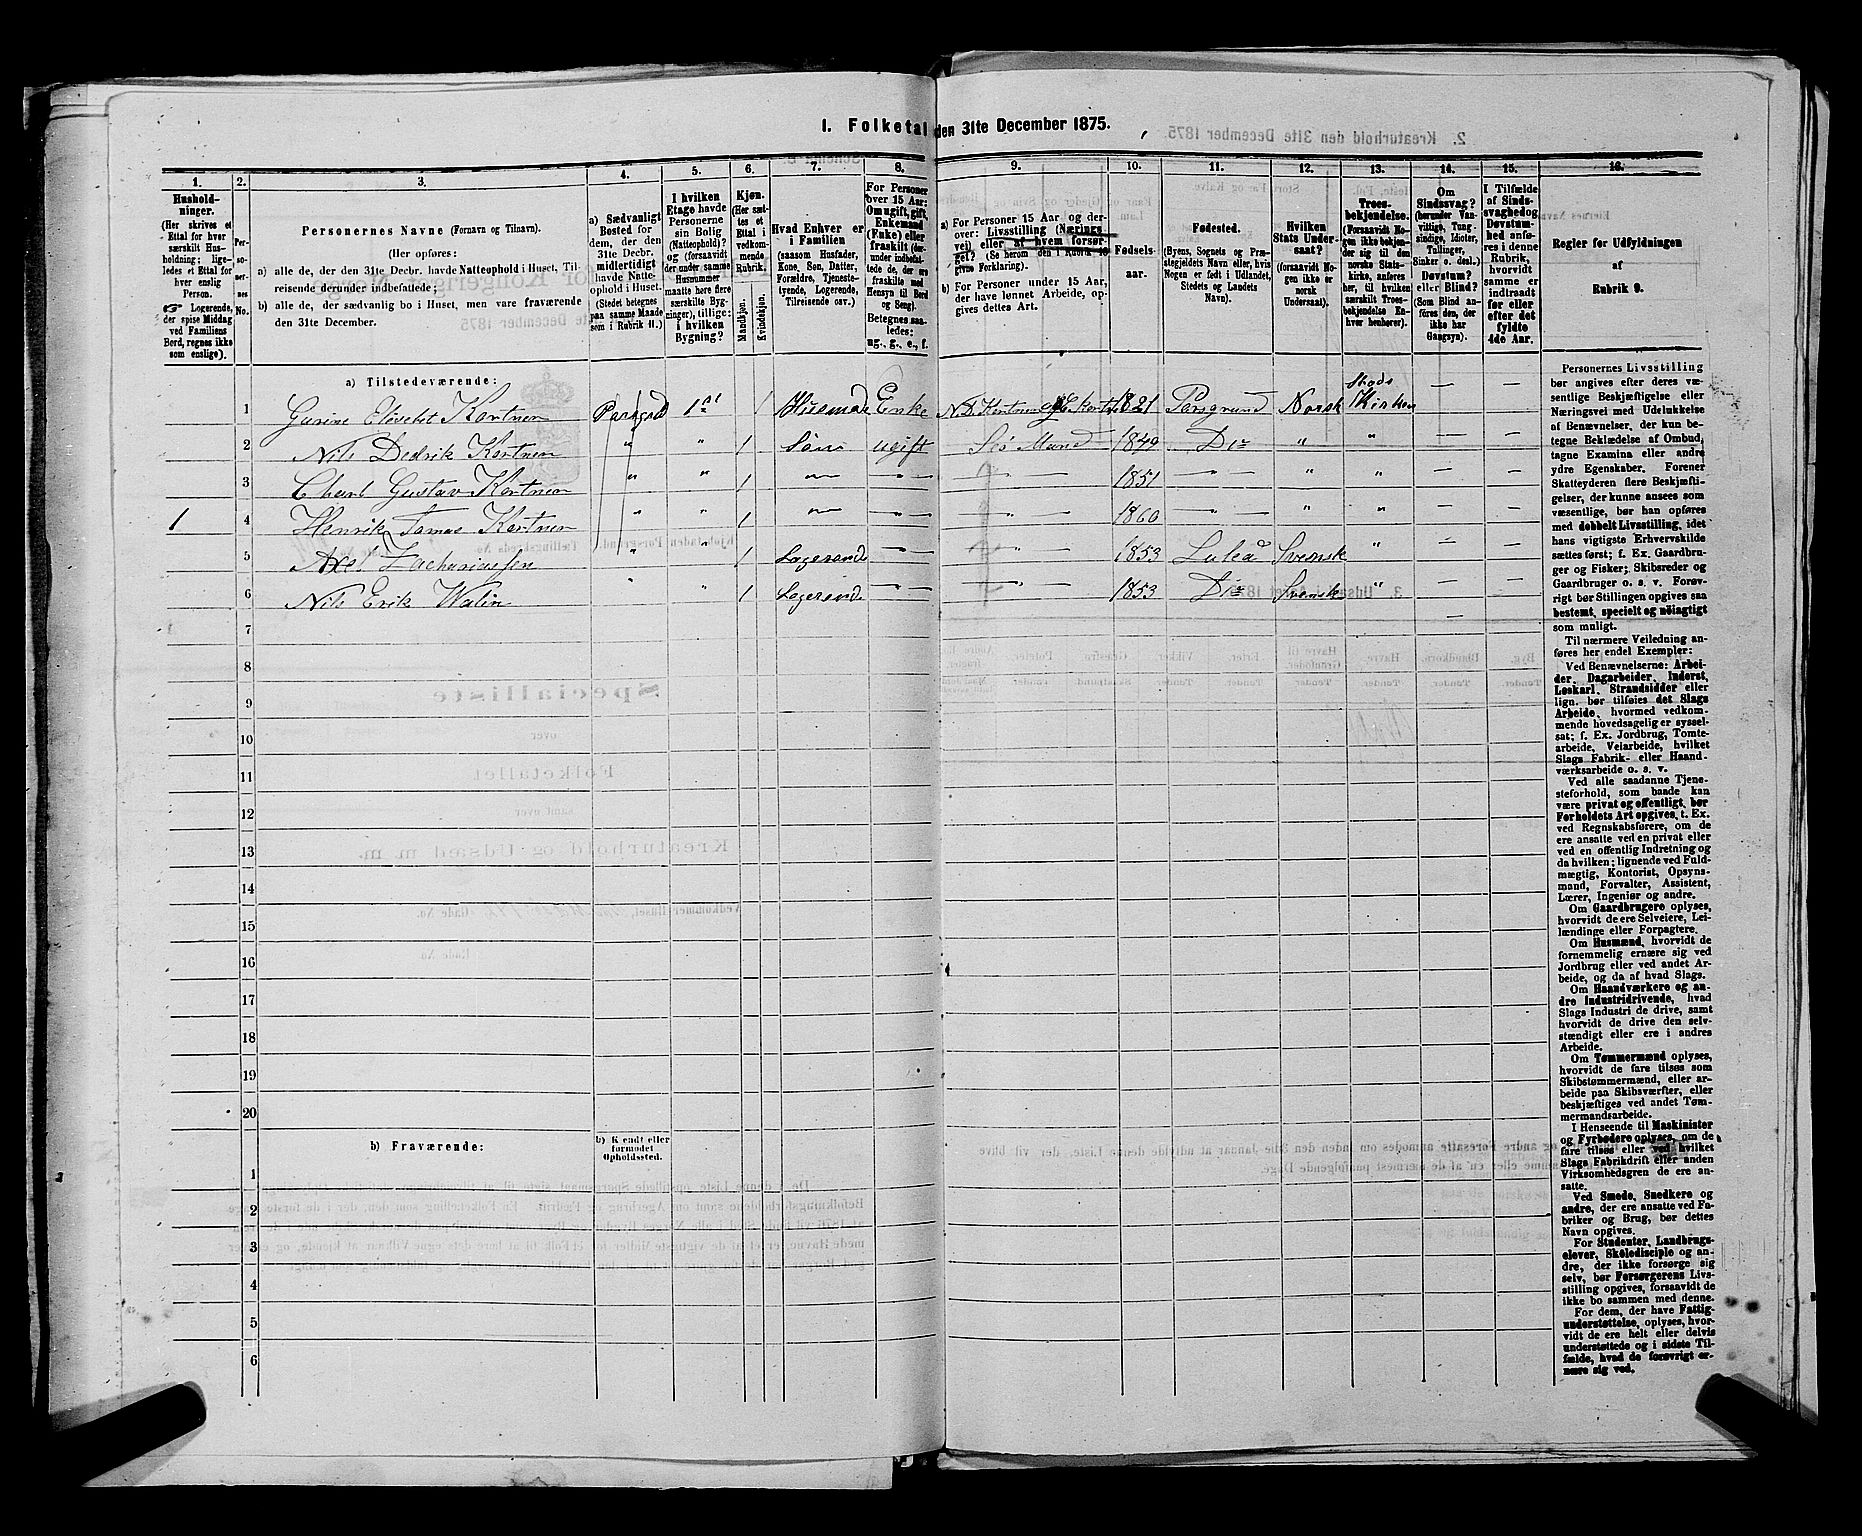 1. Folketal den 31te December 1875.
1. 2. 3. 4. 5. 6. 7. 8. 9. 10. 11. 12. 13. 14. 15. 16.
Hushold-
ninger.
(Her skrives et
Ettal for hver
særskilt Hus-
holdning; lige-
ledes et Ettal for
hver enslig
Person.
Logerende,
der spise Middag
ved Familiens
Bord, regnes ikke
som enslige).
Per-
so-
ner-
nes
No.
Personernes Navne (Fornavn og Tilnavn).
(Her opføres:
a) alle de, der den 31te Decbr. havde Natteophold i Huset, Til-
reisende derunder indbefattede;
b) alle de, der sædvanlig bo i Huset, men vare fraværende
den 31te December.
a) Sædvanligt
Bosted for
dem, der den
31te Decbr.
midlertidigt
havde Natte-
ophold i Huset.
(Stedet betegnes
paa samme Maade
som i Rubrik 11.)
I hvilken
Etage havde
Personerne
sin Bolig
(Natteophold)?
og (forsaavidt
der under samme
Husnummer
maatte høre flere
særskilte Byg-
ninger), tillige:
i hvilken
Bygning?
Kjøn.
(Her sæt-
tes et
Ettal i
vedkom-
mende
Rubrik.
Mandkjøn.
Kvindekjøn.
Hvad Enhver er
i Familien
(saasom Husfader,
Kone, Søn, Datter,
Forældre, Tjeneste-
tyende, Logerende,
Tilreisende osv.)
For Personer
over 15 Aar:
Om ugift, gift,
Enkemand
(Enke) eller
fraskilt
fraskilte med
Hensyn til Bord
og Seng).
Betegnes saa-
ledes:
ug., g., e., f.
a) For Personer 15 Aar og der-
over: Livsstilling (Nærings-
vei) eller af hvem forsør-
get? (Se herom den i Rubrik 16
givne Forklaring).
b) For Personer under 15 Aar,
der have lønnet Arbeide, op-
gives dettes Art.
Fødsels-
aar.
Fødested.
(Byens, Sognets og Præ-
stegjeldets Navn eller, hvis
Nogen er født i Udlandet,
Stedets og Landets
Navn).
Hvilken
Stats Under-
saat?
(forsaavidt No-
gen ikke er
norsk
Undersaat).
Troes-
bekjendelse.
(Forsaavidt No-
gen ikke bekjen-
der sig til den
norske Stats-
kirke, anføres
her, til hvilken
særskilt Troes-
bekjendelse En-
hver henhører).
Om
Sindssvag?
(herunder Van-
vittige, Tung-
sindige, Idioter,
Tullinger,
Sinker o. desl.)
Døvstum?
eller Blind?
(Som Blind an-
føres den, der
ikke har
Gangsyn).
I Tilfælde
af Sinds-
svaghed og
Døvstum-
hed anfø-
res i denne
Rubrik,
hvorvidt
samme er
indtraadt
før eller
efter det
fyldte
4de Aar.
Regler for Udfyldningen
af
Rubrik 9.
a) Tilstedeværende:
1 Gurine Elisebet Kortner Porsgrd 1st 1 Husmode Enke 1821 Porsgrund Norsk Stads Kirken — —
2 Nils Dedrik Kortner " " 1 Søn ugift Sø Mand 1849 Do " " — —
3 Charl Gustav Kortner " " 1 — " — — " — — " — 1851 — " — " " — —
1 4 Henrik Tomas Kortner " " 1 — " — — " — — " — 1860 — " — " " — —
5 Axel Zachariassen " " 1 Logerende — " — — " — 1853 Luleå Svensk " — —
6 Nils Erik Walin " " 1 Logerende — " — — " — 1853 Do Svensk " — —
7 —
8
9
10
11
12
13
14
15
16
17
18
19
20
b) Fraværende:
b) Kjendt eller
formodet
Opholdssted.
1
2
3
4
5
6
Personernes Livsstilling
bør angives efter deres væ-
sentlige Beskjæftigelse eller
Næringsvei med Udelukkelse
af Benævnelser, der kun be-
tegne Beklædelse af Ombud,
tagne Examina eller andre
ydre Egenskaber. Forener
Skatteyderen flere Beskjæfti-
gelser, der kunne ansees som
væsentlige, bør han opføres
med dobbelt Livsstilling, idet
hans vigtigste Erhvervskilde
sættes først; f. Ex. Gaardbru-
ger og Fisker; Skibsreder og
Gaardbruger o. s. v. Forøv-
rigt bør Stillingen opgives saa
bestemt, specielt og nøiagtigt
som muligt.
Til nærmere Veiledning an-
føres her endel Exempler:
Ved Benævnelserne: Arbei-
der, Dagarbeider, Inderst,
Løskarl, Strandsidder eller
lign. bør tilføies det Slags
Arbeide, hvormed vedkom-
mende hovedsagelig er syssel-
sat; f. Ex. Jordbrug, Tomte-
arbeide, Veiarbeide, hvilket
Slags Fabrik- eller Haand-
værksarbeide o. s. v.
Ved alle saadanne Tjene-
steforhold, som baade kan
være privat og offentligt, bør
Forholdets Art opgives, t. Ex.
ved Regnskabsførere, om de
ere ansatte ved en privat eller
ved en offentlig Indretning og
da hvilken; lignende ved Fuld-
mægtig, Kontorist, Opsyns-
mand, Forvalter, Assistent,
Lærer, Ingeniør og andre.
Om Gaardbrugere oplyses,
hvorvidt de ere Selveiere, Lei-
lændinge eller Forpagtere.
Om Husmænd, hvorvidt de
fornemmelig ernære sig ved
Jordbrug eller ved andet Ar-
beide, og da af hvad Slags.
Om Haandværkere og an-
dre Industridrivende, hvad
Slags Industri de drive, samt
hvorvidt de drive den selv-
stændigt eller ere i andres
Arbeide.
Om Tømmermænd oplyses,
hvorvidt de fare tilsøs som
Skibstømmermænd, eller ar-
beide paa Skibsværfter, eller
beskjæftiges ved andet Tøm-
mermandsarbeide.
I Henseende til Maskinister
og Fyrbødere oplyses, om de
fare tilsøs eller ved hvilket
Slags Fabrikdrift eller anden
Virksomhedsgren de ere an-
satte.
Ved Smede, Snedkere og
andre, der ere ansatte ved Fa-
briker og Brug, bør dettes
Navn opgives.
For Studenter, Landbrugs-
elever, Skoledisciple og an-
dre, der ikke forsørge sig
selv, bør Forsørgerens Livs-
stilling opgives, forsaavidt de
ikke bo sammen med denne.
For dem, der have Fattig-
understøttelse, oplyses, hvor-
vidt de ere helt eller delvis
understøttede og i sidste Til-
fælde, hvad de forøvrigt er-
nære sig ved.